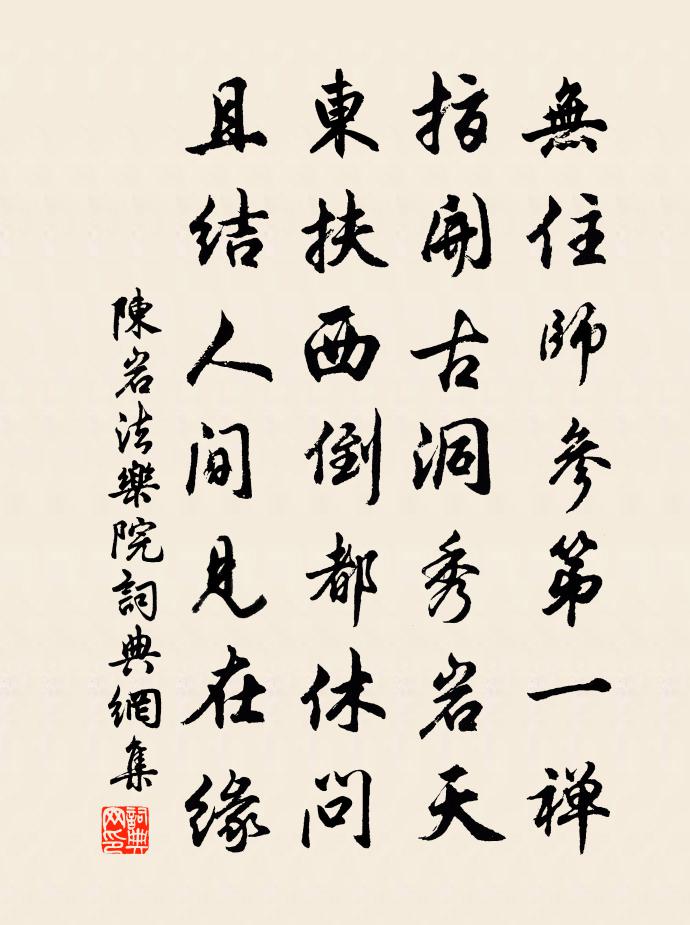 無住師參第一禅
指開古洞秀岩天
東扶西倒都休問
且结人间見在緣
陳岩法樂院詞典網集
詞典网印